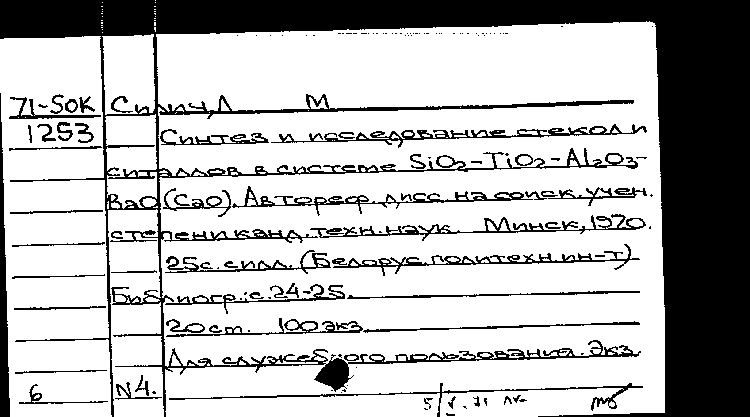 71-50К Силич, Л М
1253 Синтез и исследование стекол и
ситаллов в системе SiO2-TiO2-Al2O3-
BaO(CaO). Автореф. дисс. на соиск. учен.
степени канд. техн. наук. Минск, 1970.
25с. с илл. (Белорус. политехн. ин-т)
Библиогр.: с. 24-25.
20 см. 100 экз.
Для служебного пользования. Экз.
6 N4.